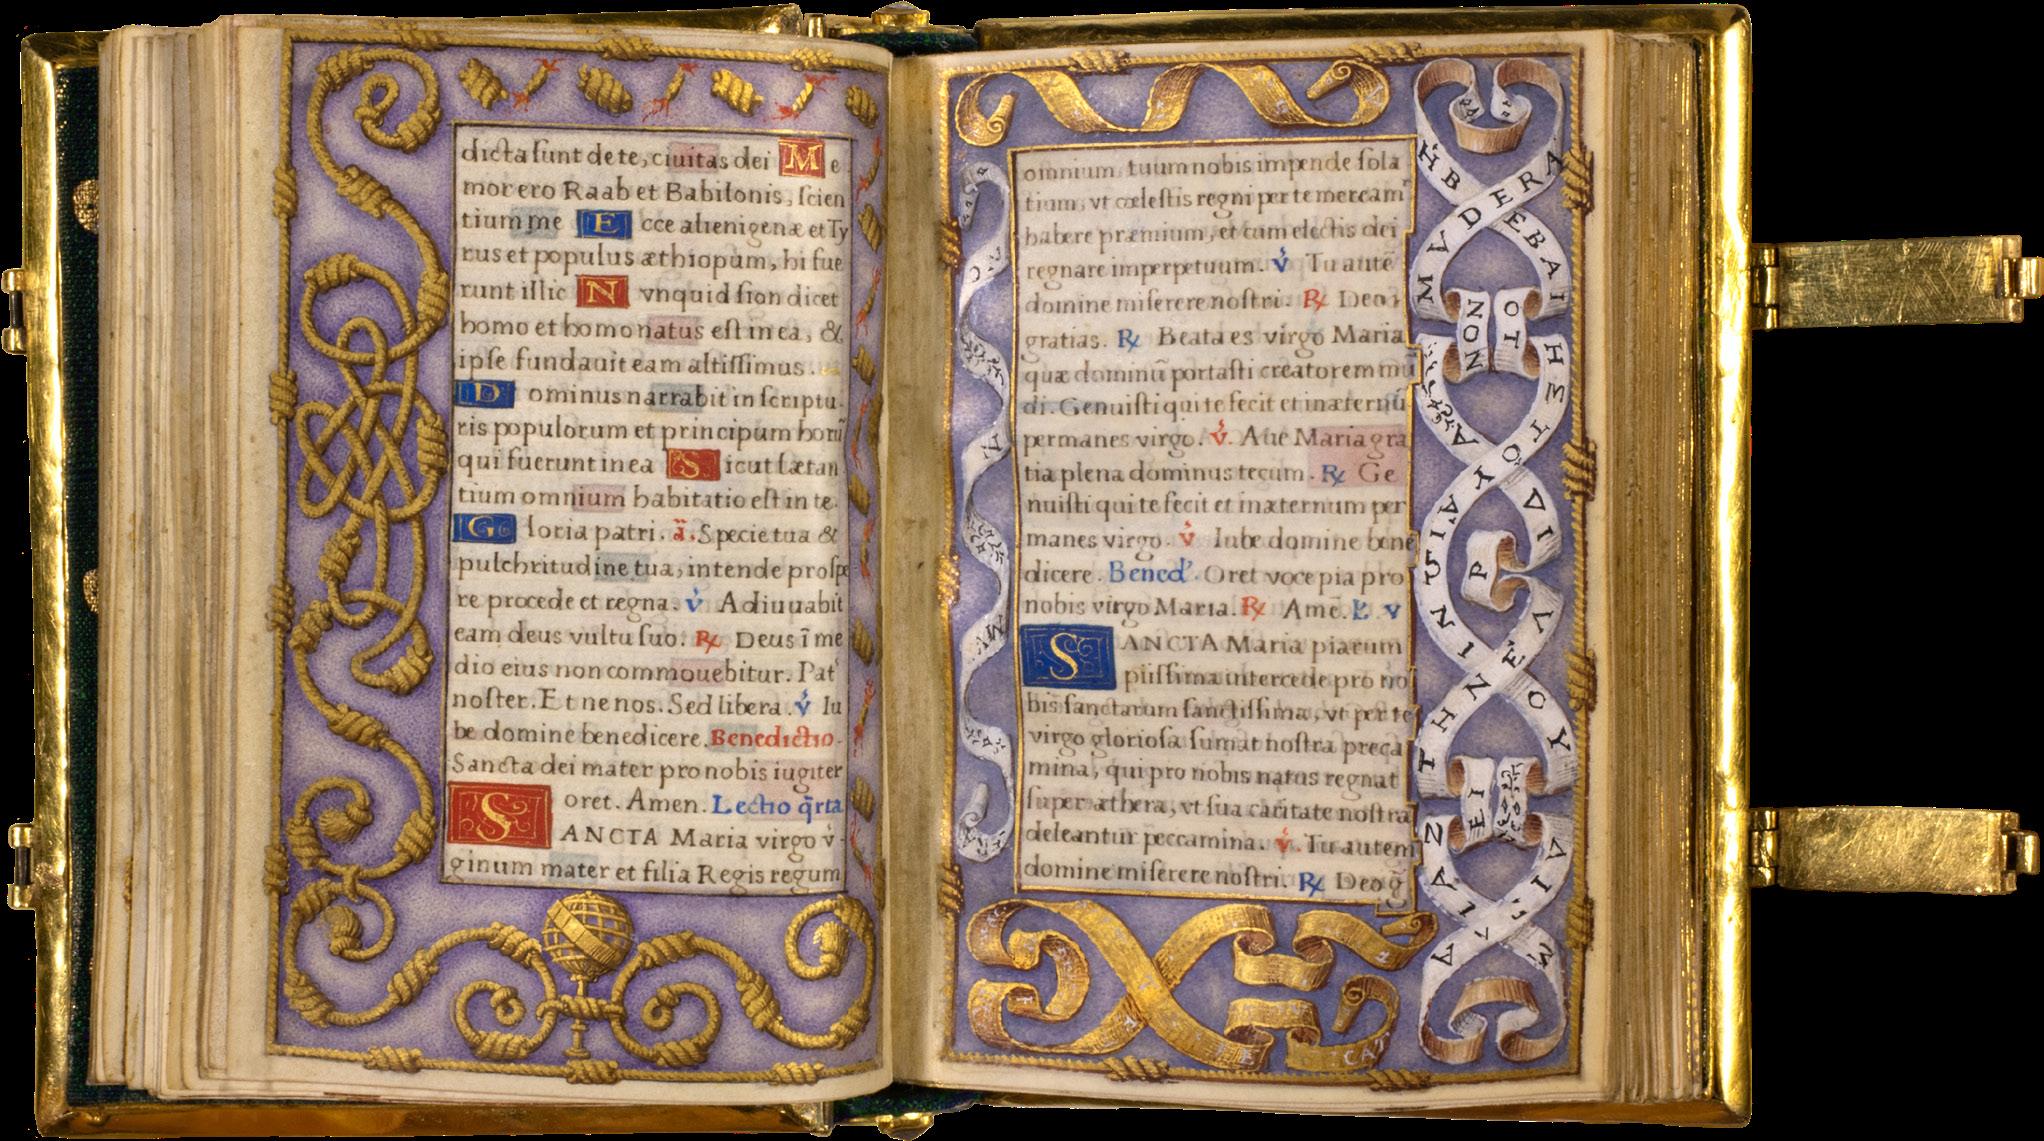 dicta sunt de te, ciuitas dei M e
mor ero Raab et Babilonis, scien
tium me E cce alienigenæ et Ty
rus et populus æthiopum, hi fue
runt illic N vnquid sion dicet
homo et homo natus est in ea, &
ipse fundauit eam altissimus.
D ominus narrabit in scriptu
ris populorum et principum horū
qui fuerunt in ea S icut lætan
tium omnium habitatio est in te.
G loria patri. ā. Specie tua &
pulchritudine tua, intende prospe
re procede et regna. v̓ Adiuuabit
eam deus vultu suo. ℟ Deus ī me
dio eius non commouebitur. Pat̓
noster. Et ne nos. Sed libera. v̓ Iu
be domine benedicere. Benedictio.
Sancta dei mater pro nobis iugiter
oret. Amen. Lectio q̄rta
SANCTA Maria virgo v̓
ginum mater et filia Regis regum
omnium, tuum nobis impende sola
tium, vt cœlestis regni per te mercam̓
habere præmium, et cum electis dei
regnare imperpetuum. v̓ Tu autē
domine miserere nostri. ℟ Deo
gratias. ℟ Beata es virgo Maria
quæ dominū portasti creatorem mū
di. Genuisti qui te fecit et in æternū
permanes virgo. v̓. Aue Maria gra
tia plena dominus tecum. ℟ Ge
nuisti qui te fecit et in æternum per
manes virgo. v̓ Iube domine bene
dicere. Bened̓. Oret voce pia pro
nobis virgo Maria. ℟ Amē. L̓ v
SANCTA Maria piarum
piissima intercede pro no
bis sanctarum sanctissima, vt per te
virgo gloriosa sumat nostra preca
mina, qui pro nobis natus regnat
super æthera, vt sua caritate nostra
deleantur peccamina. v̓. Tu autem
domine miserere nostri. ℟ Deo g̃
NON
OT
P
EI